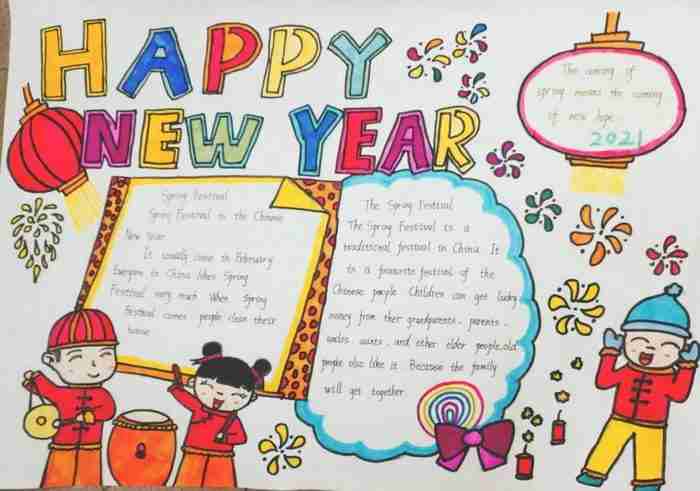 HAPPY
NEW YEAR
The coming of
spring means the coming
of new hope.
2021
Spring Festival
Spring Festival is the Chinese
New Year
It usually come in February
Everyone in China likes Spring
Festival very much When Spring
Festival comes people clean their
house
The Spring Festival
The Spring Festival is a
traditional festival in China. It
is a favourite festival of the
Chinese people Children can get lucky
money from their grandparents, parents,
uncles, aunts, and other elder people, old
people also like it. Because the family
will get together